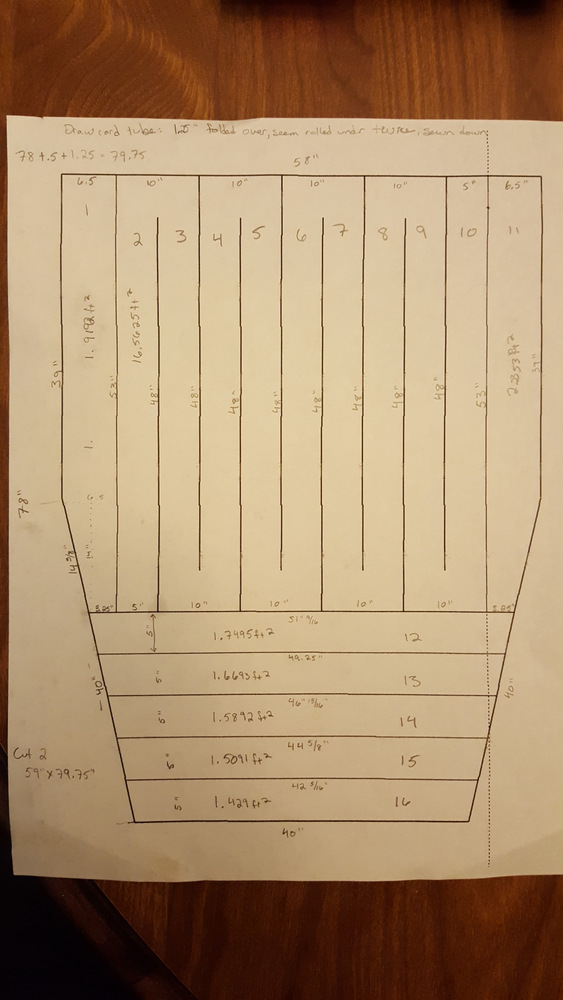 Drawcord tube: 1.25" folded over, seem rolled under twice, sewn down
78 + .5 + 1.25 = 79.75
58"
6.5 10" 10" 10" 10" 5" 6.5"
1 2 3 4 5 6 7 8 9 10 11
1.9192 ft²
16.5625 ft²
39" 53" 48" 48" 48" 48" 48" 48" 48" 53" 39"
1.
78"
14 3/8" 14"
3.25" 5" 10" 10" 10" 10" 3.25"
51" 9/16
5" 1.7495 ft² 12
49.25"
5" 1.6693 ft² 13
40" 40"
46" 15/16"
5" 1.5892 ft² 14
44 5/8"
Cut 2
59" x 79.75"
5" 1.5091 ft² 15
42 5/16"
5" 1.429 ft² 16
40"